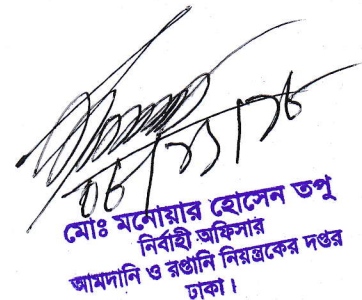 মোঃ মনোয়ার হোসেন তপু
নির্বাহী অফিসার
আমদানি ও রপ্তানি নিয়ন্ত্রকের দপ্তর
ঢাকা।